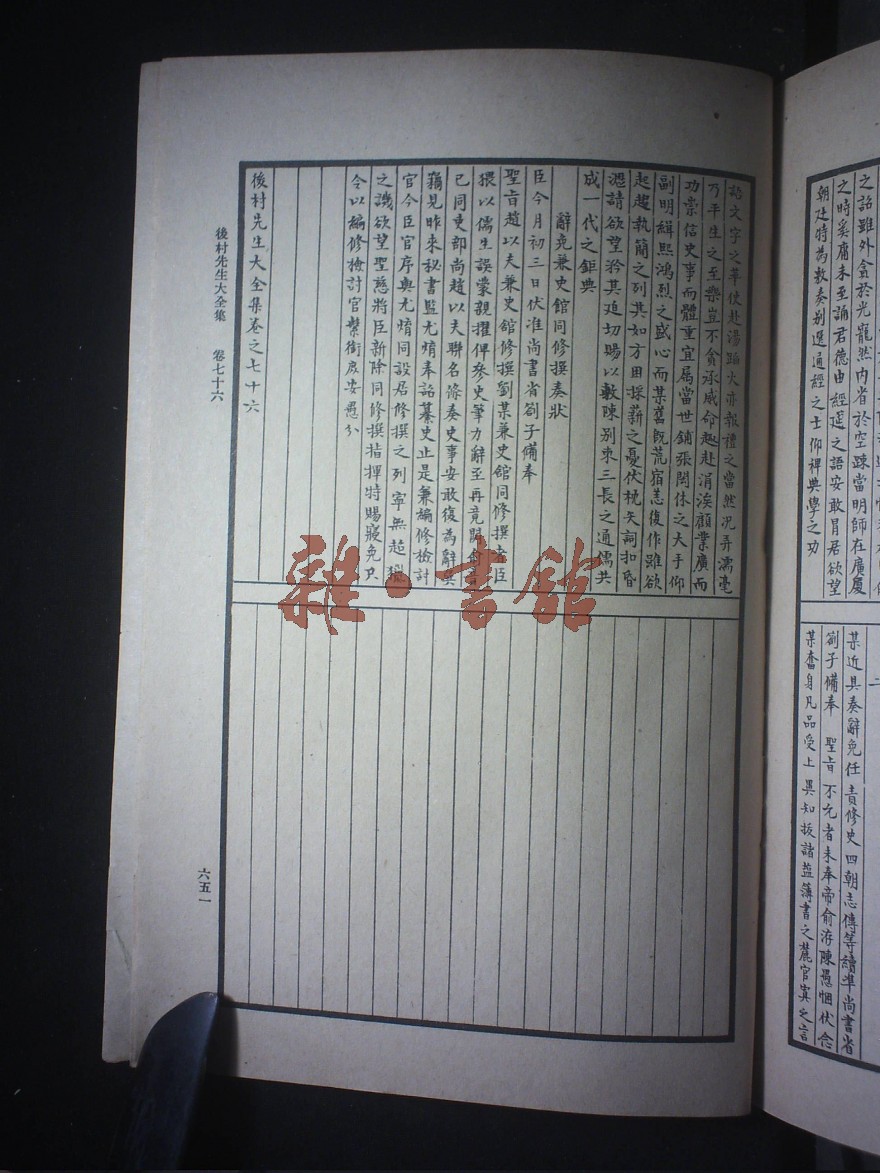 之詔雖外貪於光寵然内省於空踈當明師在廣廈
之時奚庸未至誦君德由經莚之語安敢冒居欲望
朝廷時為敷奏别選通經之士仰禆典學之功
某近具奏辭免任責修史四朝志傳等續準尚書省
劄子備奉 聖旨不允者未奉帝俞洊陳愚悃伏念
某奮身凡品受上異知扳諸簿書之叢官寘之言
語文字之華使赴湯蹈火亦報禮之當然况弄濡毫
乃平生之至樂豈不貪承威命趣赴涓涘顧業廣而
功崇信史事而體重宜属當世鋪張閎休之大手仰
副明緝熙鴻烈之盛心而某舊既荒宿恙復作雖欲
起趨執簡之列其如方困採薪之憂伏枕矢詞扣昏
慁請欲望矜其迫切賜以敷陳别求三長之通儒共
成一代之鉅典
辭免兼史館同修撰奏狀
臣今月初三日伏准尚書省劄子備奉
聖旨趙以夫兼史館修撰劉某兼史館同修撰者臣
猥以儒生誤蒙親擢俾參史筆力辭至再竟
已同吏部尚趙以夫聯名條奏史事安敢復為辭
竊見昨來秘書監尤焴奉詔纂史止是兼編修檢討
官今臣官序與尤焴同設居修撰之列寧無超躐
之譏欲望聖慈將臣新除同修撰指揮特賜寢免只
令以編修檢討官繫銜庶安愚分
後村先生大全集卷之七十六
後村先生大全集 卷七十六
六五一
二
雜·書館